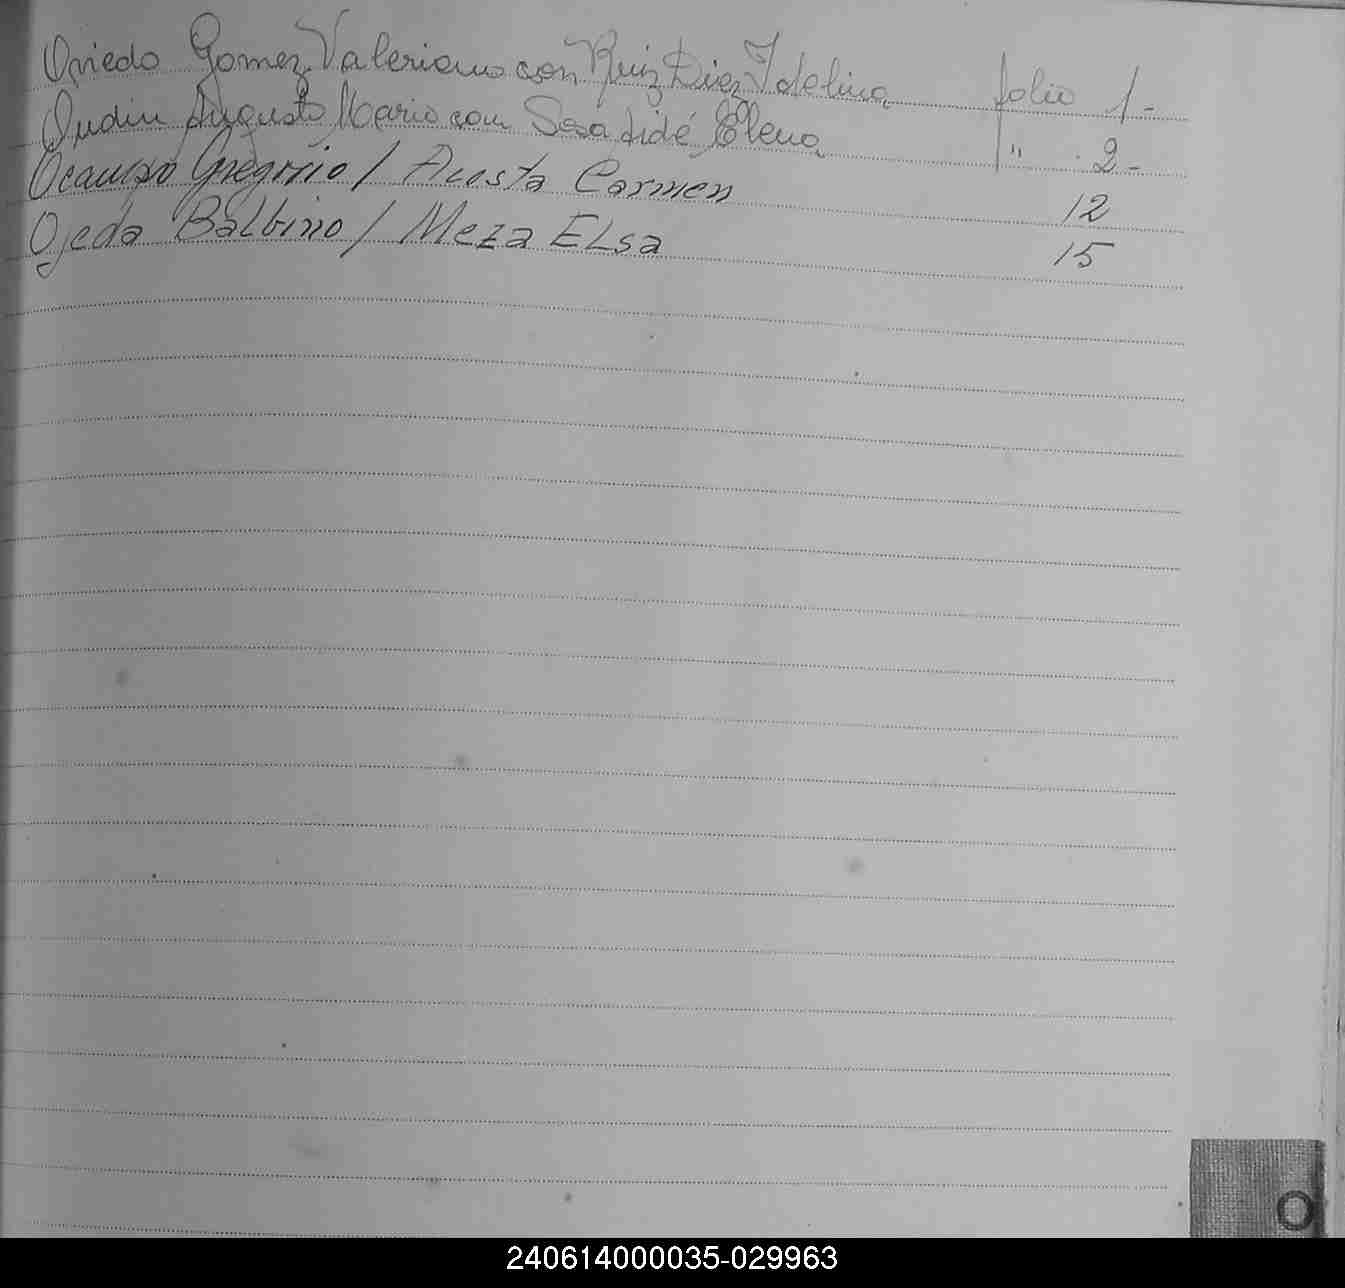 Oviedo Gomez Valeriano con Ruiz Diez Idelina folio 1-
Oudin Augusto Mario con Sosa Aidé Elena " 2-
Ocampo Gregorio / Acosta Carmen 12
Ojeda Balbino / Meza ELsa 15
O
240614000035-029963